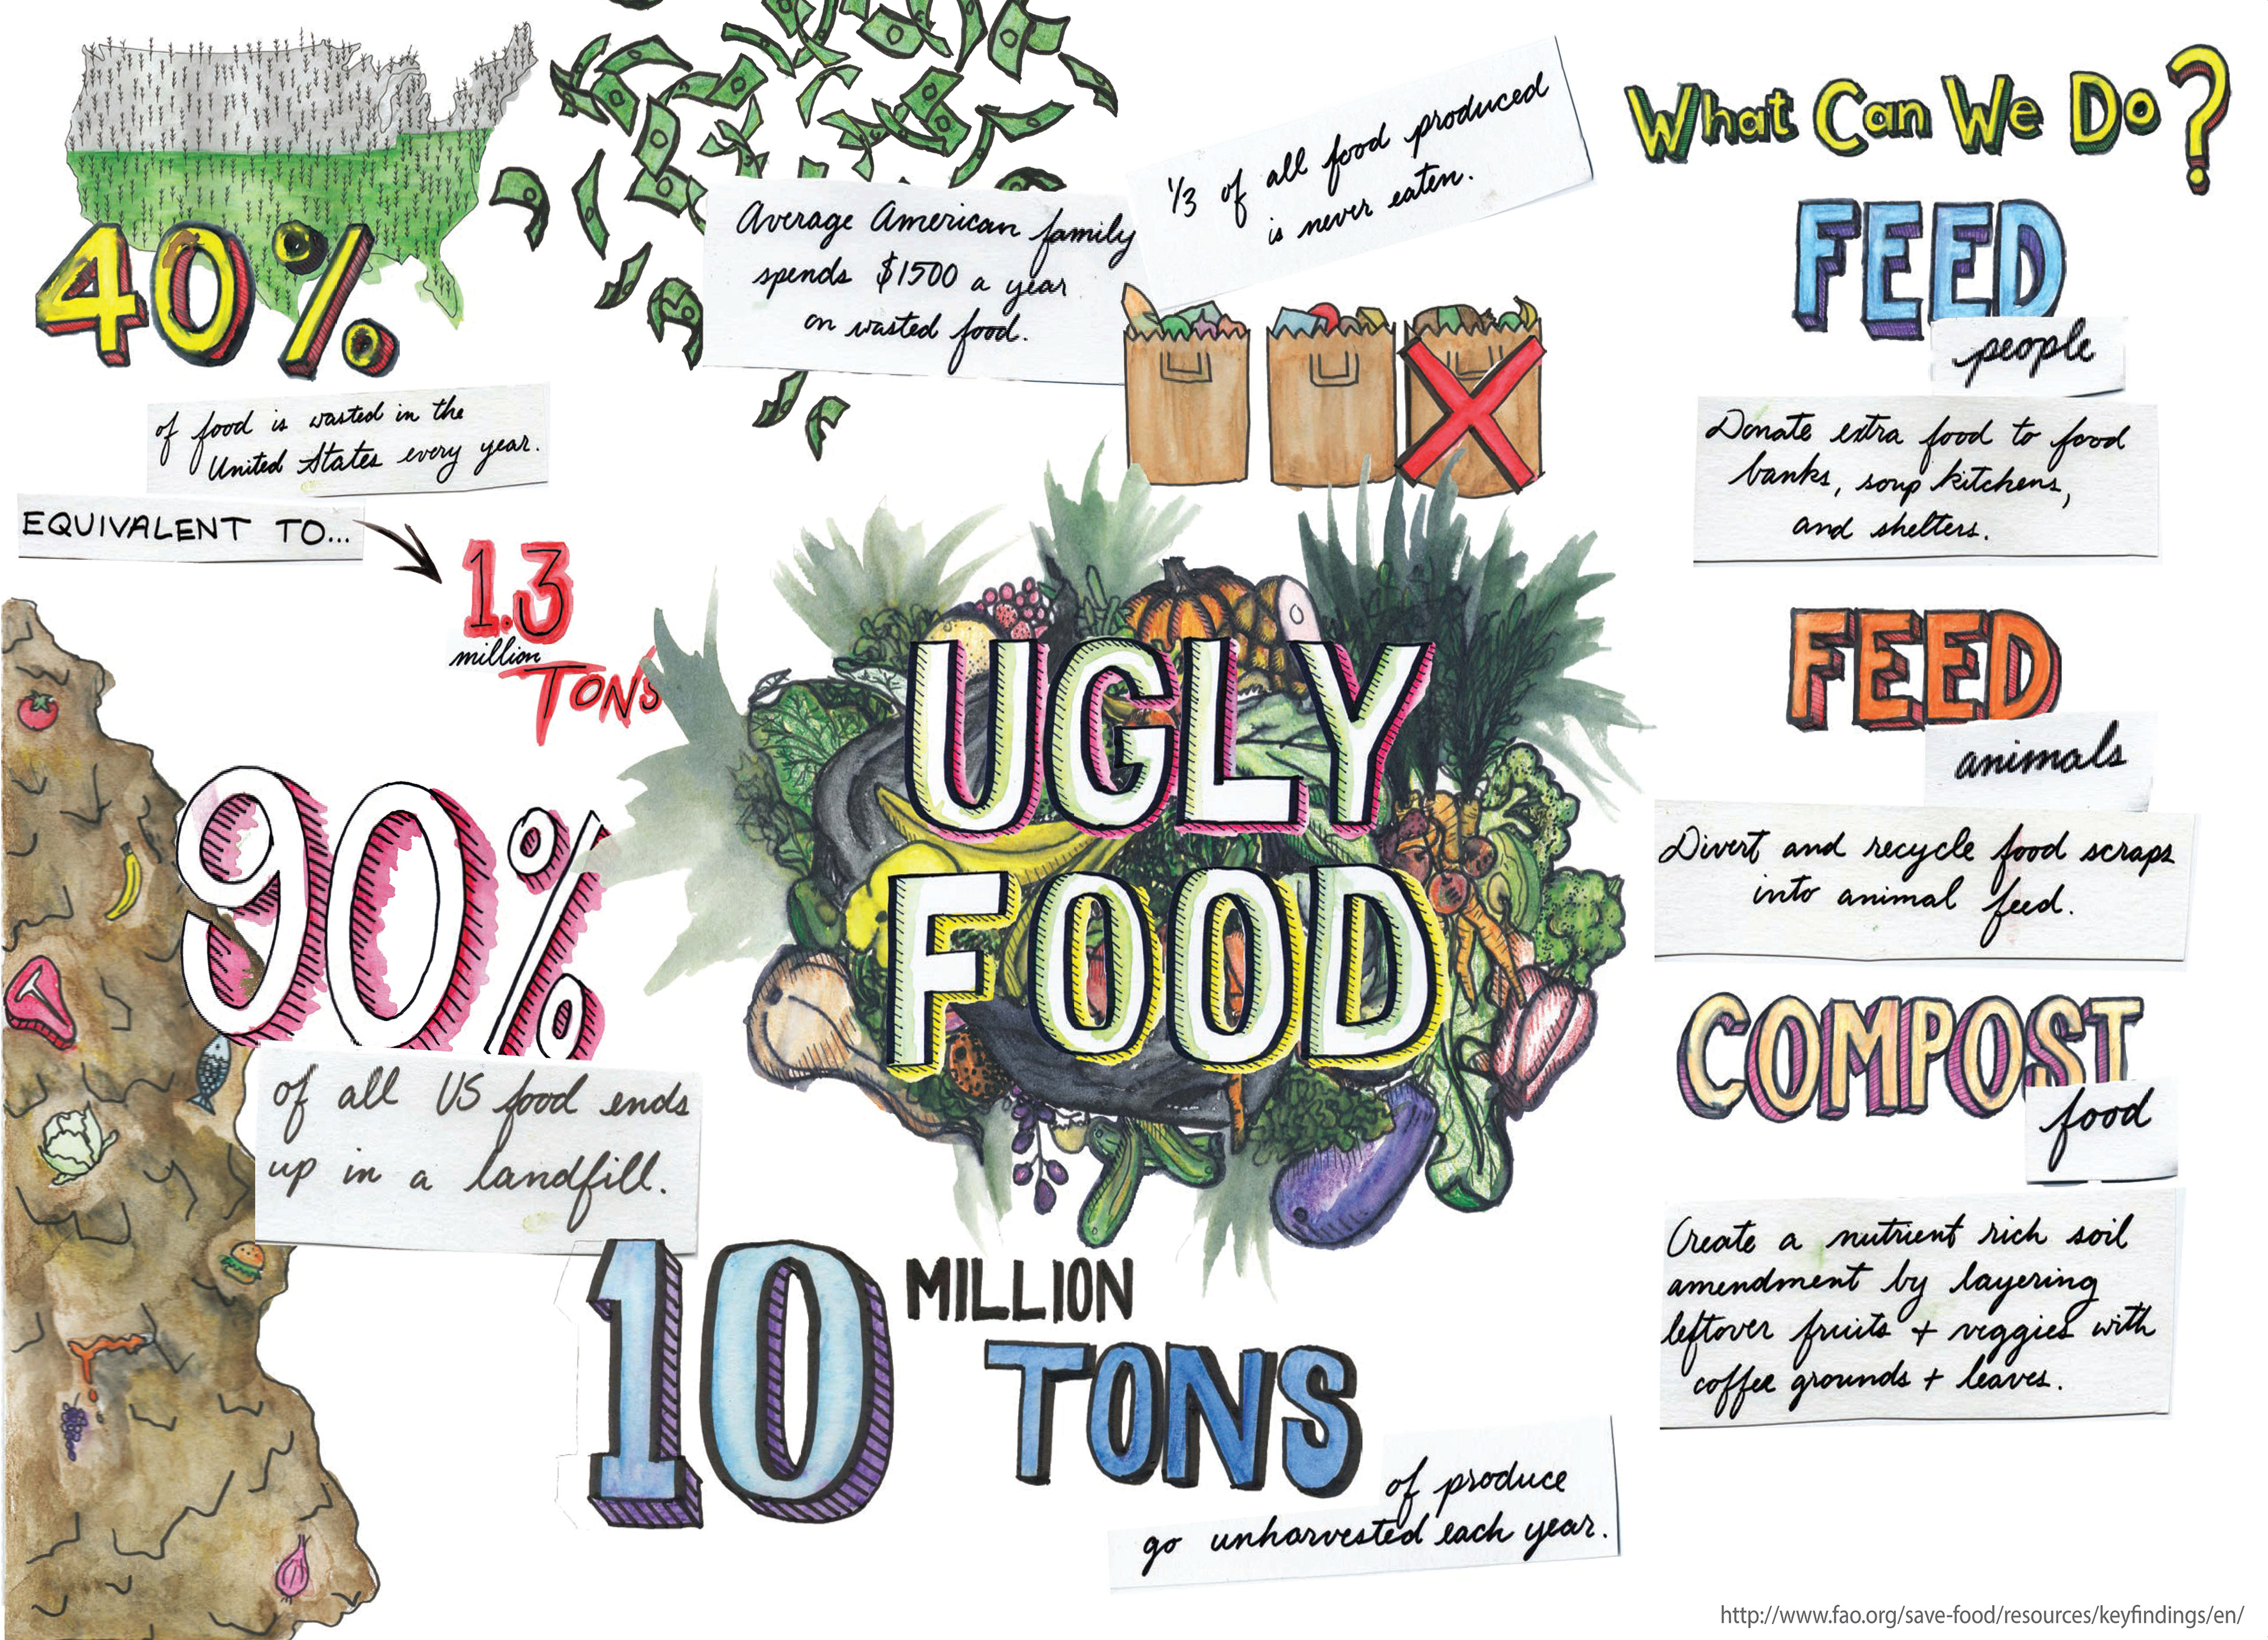 40%
of food is wasted in the
United States every year.
EQUIVALENT TO...
1.3
million
TONS
90%
of all US food ends
up in a landfill.
Average American family
spends $1500 a year
on wasted food.
1/3 of all food produced
is never eaten.
UGLY
FOOD
10
MILLION
TONS
of produce
go unharvested each year.
What Can We Do?
FEED
people
Donate extra food to food
banks, soup kitchens,
and shelters.
FEED
animals
Divert and recycle food scraps
into animal feed.
COMPOST
food
Create a nutrient rich soil
amendment by layering
leftover fruits + veggies with
coffee grounds + leaves.
http://www.fao.org/save-food/resources/keyfindings/en/